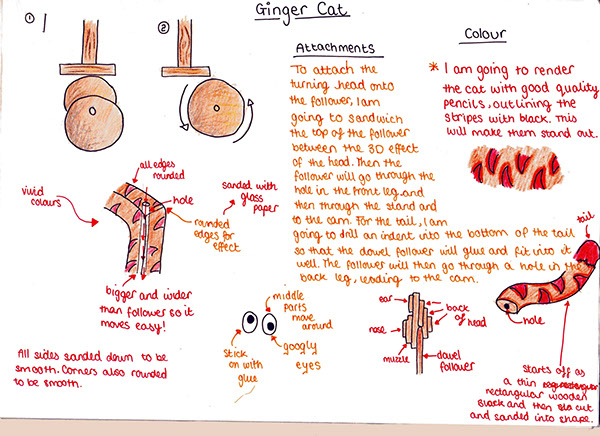 Ginger Cat
① 1
②
Attachments
To attach the
turning head onto
the follower, I am
going to sandwich
the top of the follower
between the 3D effect
of the head. Then the
follower will go through the
hole in the front leg, and
then through the stand and
to the cam. For the tail, I am
going to drill an indent into the bottom of the tail
so that the dowel follower will glue and fit into it
well. The follower will then go through a hole in the
back leg, leading to the cam.
Colour
* I am going to render
the cat with good quality
pencils, outlining the
stripes with black. This
will make them stand out.
all edges
rounded
vivid
colours
hole
sanded with
glass
paper
rounded
edges for
effect
bigger and wider
than follower so it
moves easy!
All sides sanded down to be
smooth. Corners also rounded
to be smooth.
middle
parts
move
around
googly
eyes
stick
on with
glue
ear
nose
muzzle
back
of
head
dowel
follower
tail
hole
starts off as
a thin
rectangular wooden
block and then cut
and sanded into shape.